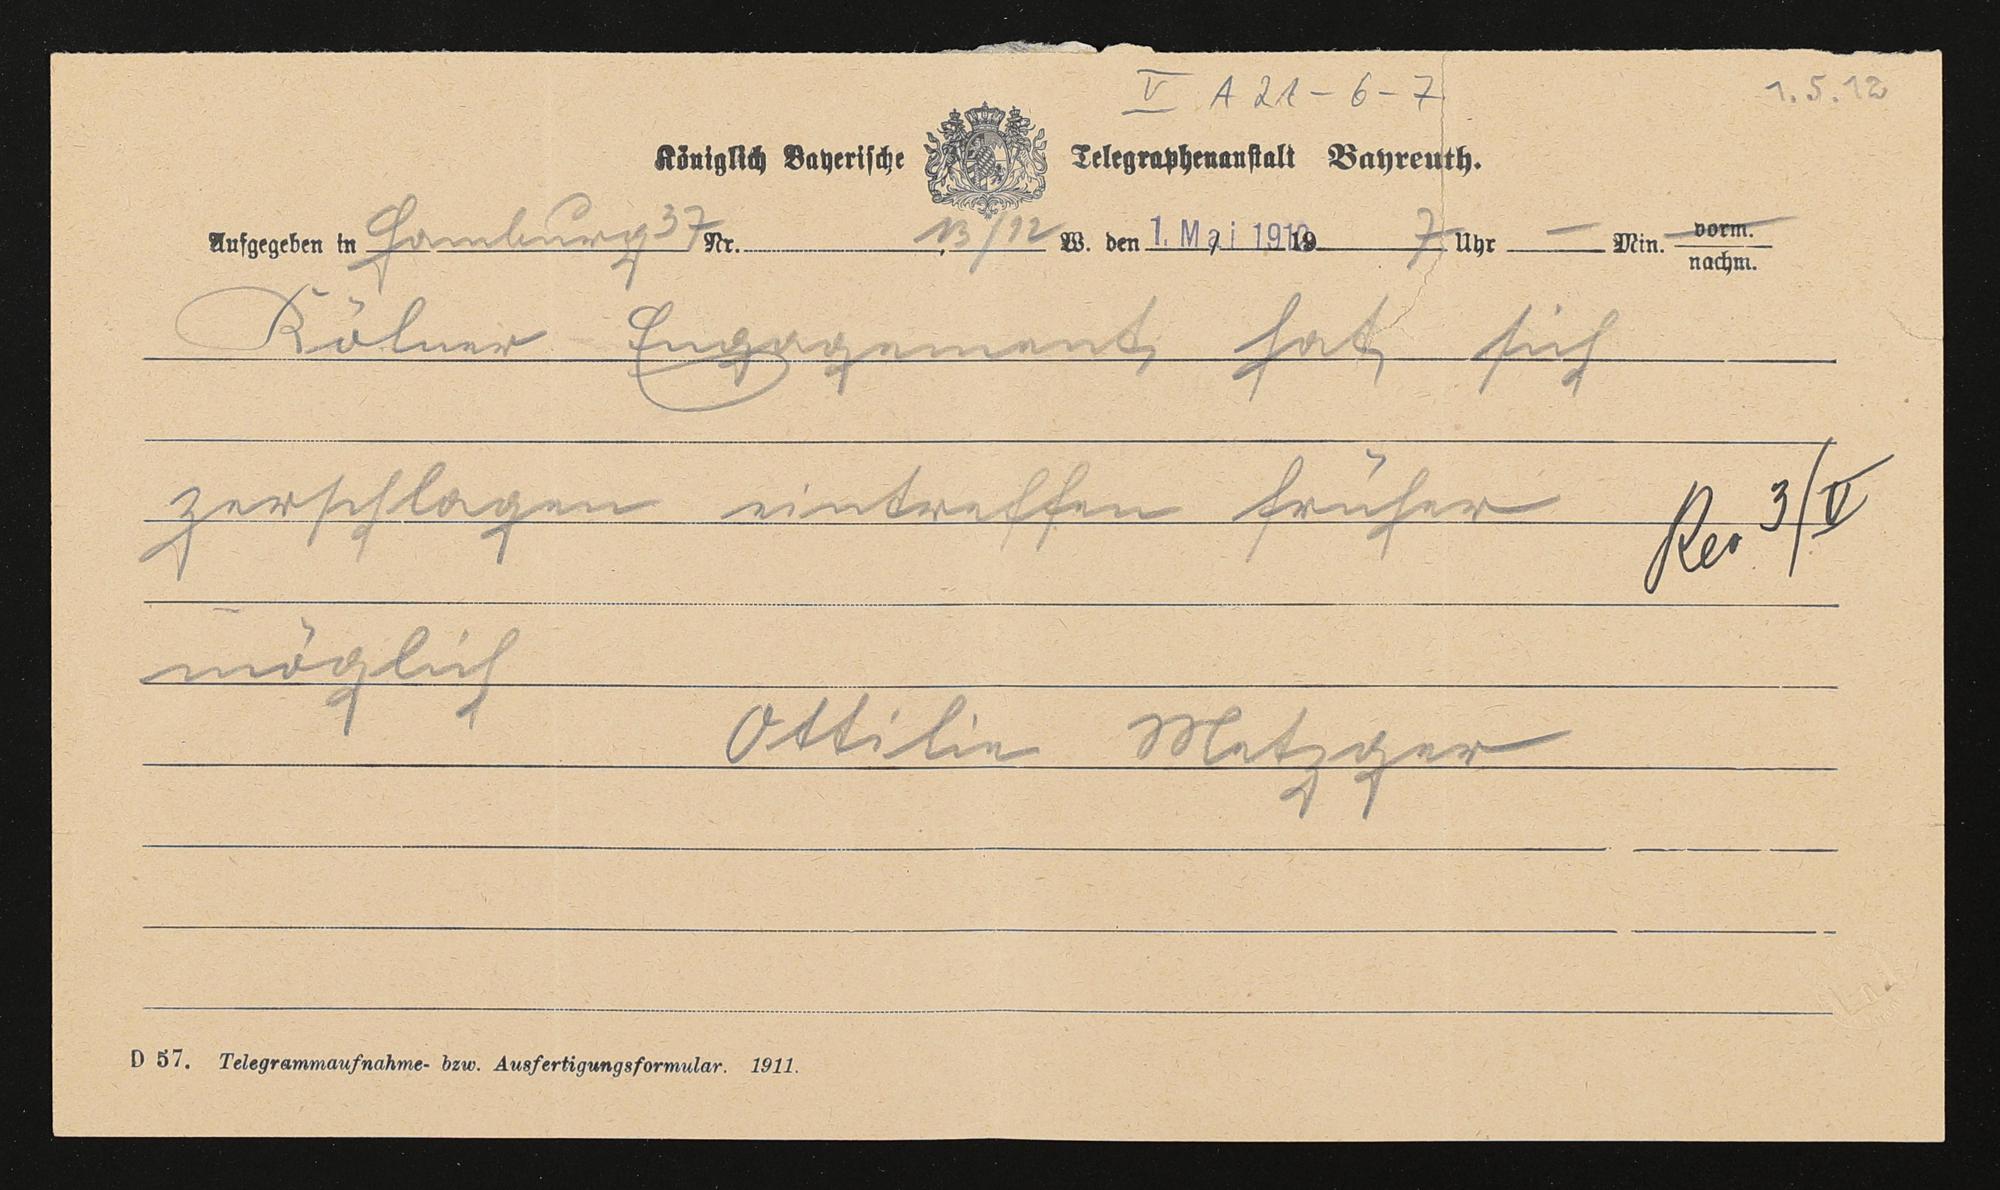 V A 21-6-7
1.5.12
Königlich Bayerische Telegraphenanstalt Bayreuth.
Aufgegeben in Hamburg 37 Nr. 13/12 W. den 1. Mai 1912 19 7 Uhr — Min. vorm. nachm.
Kölner Engagement hat sich
zerschlagen eintreffen früher
Re. 3/V
möglich
Ottilie Metzger
D 57. Telegrammaufnahme- bzw. Ausfertigungsformular. 1911.